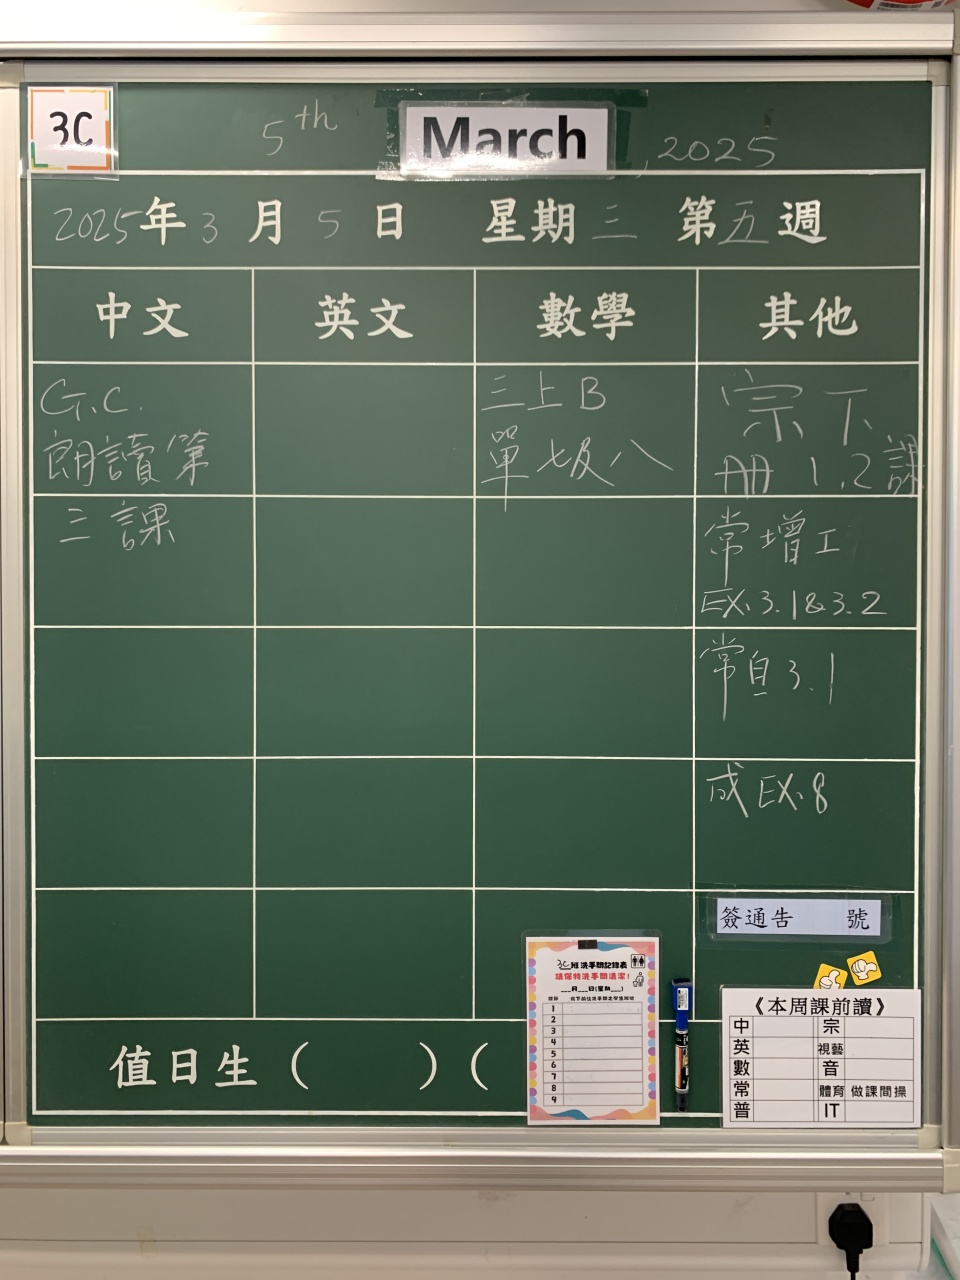 3C
5th March, 2025
2025年3月5日 星期三 第五週
中文 英文 數學 其他
G.C.
朗讀第
三課
三上B
單七及八
宗下
冊1,2課
常增工
EX.3.1&3.2
常自3.1
成EX.8
簽通告 號
3C班洗手間記錄表
請保持洗手間清潔!
___月___日(星期___)
1
2
3
4
5
6
7
8
9
《本周課前讀》
中 宗
英 視藝
數 音
常 體育 做課間操
普 IT
值日生( )(